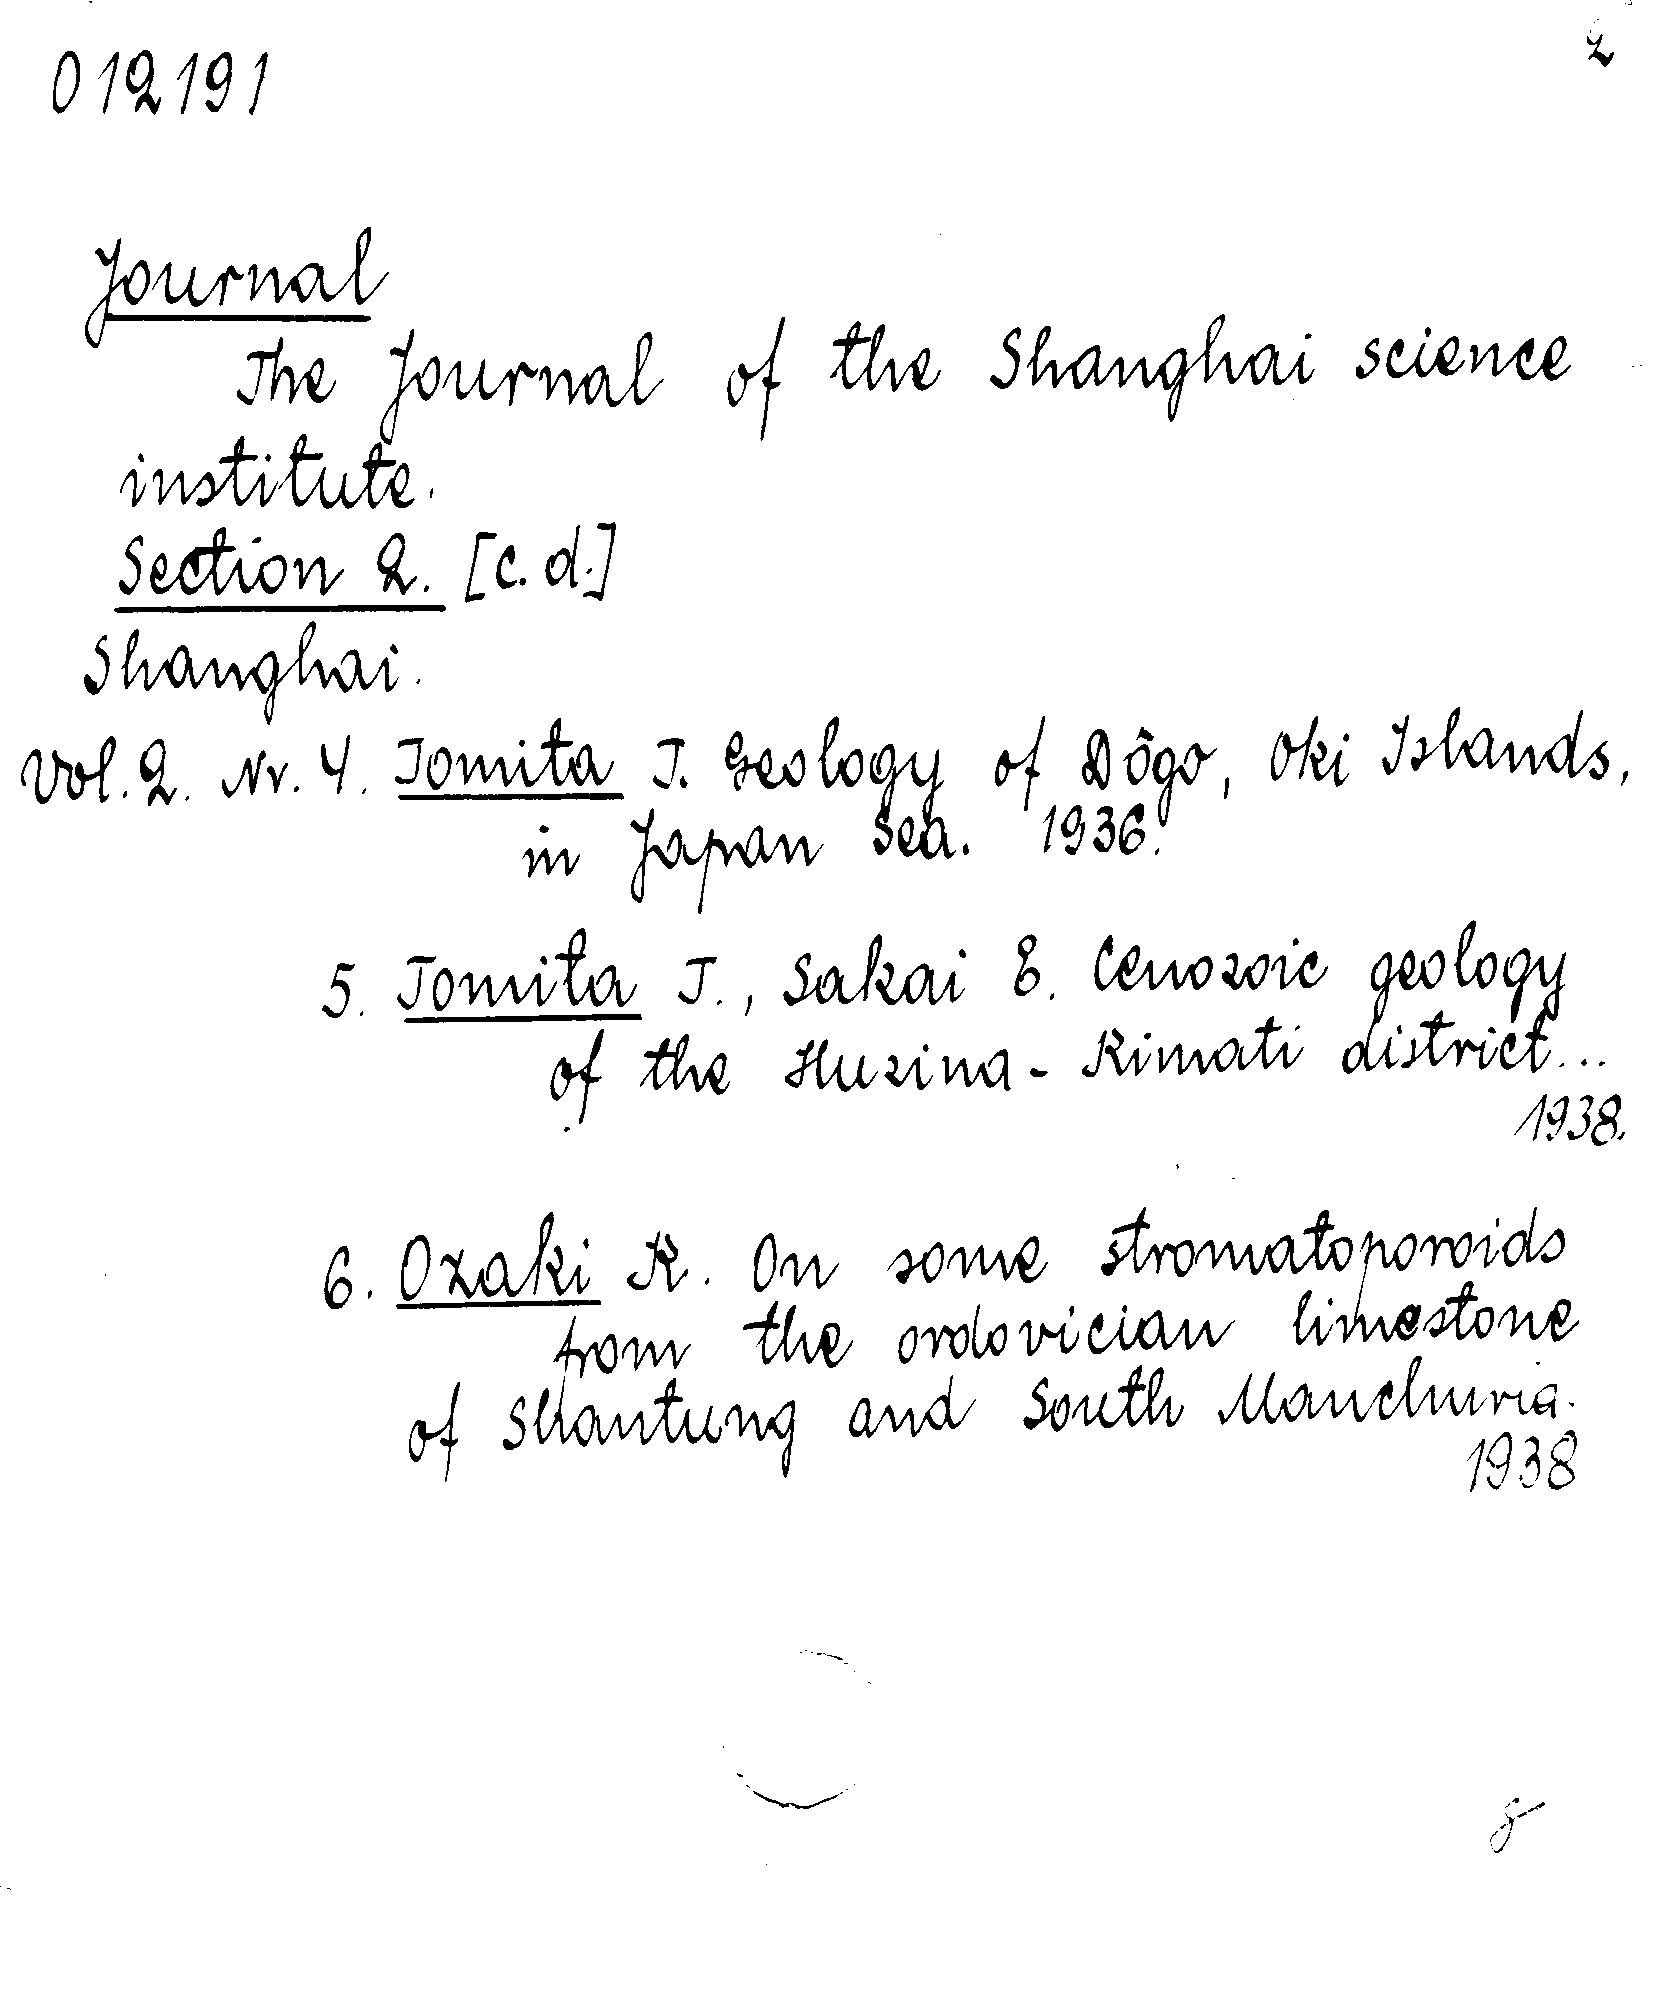 2
012191
Journal
The Journal of the Shanghai science
institute.
Section 2. [c.d.]
Shanghai.
Vol. 2. Nr. 4. Tomita T. Geology of Dôgo, Oki Islands,
in Japan Sea. 1936.
5. Tomita T., Sakai E. Cenozoic geology
of the Huzina-Kimati district...
1938.
6. Ozaki K. On some stromatoporoids
from the ordovician limestone
of Shantung and South Manchuria.
1938